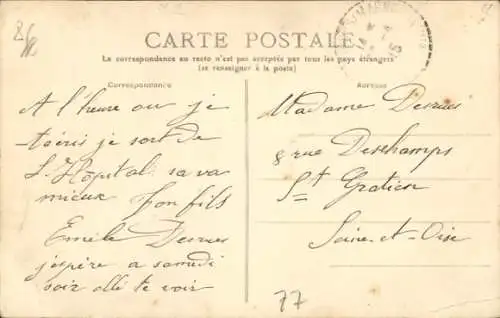 CARTE POSTALE
La correspondance au recto n'est pas acceptée par tous les pays étrangers
(se renseigner à la poste)
Correspondance
Adresse
A l'heure ou je
t'écris je sort de
L'Hôpital sa va
mieux ton fils
Emile Desrues
j'espère a samedi
soir allé te voir
Madame Desrues
8 rue Deschamps
St Gratien
Seine-et-Oise
77